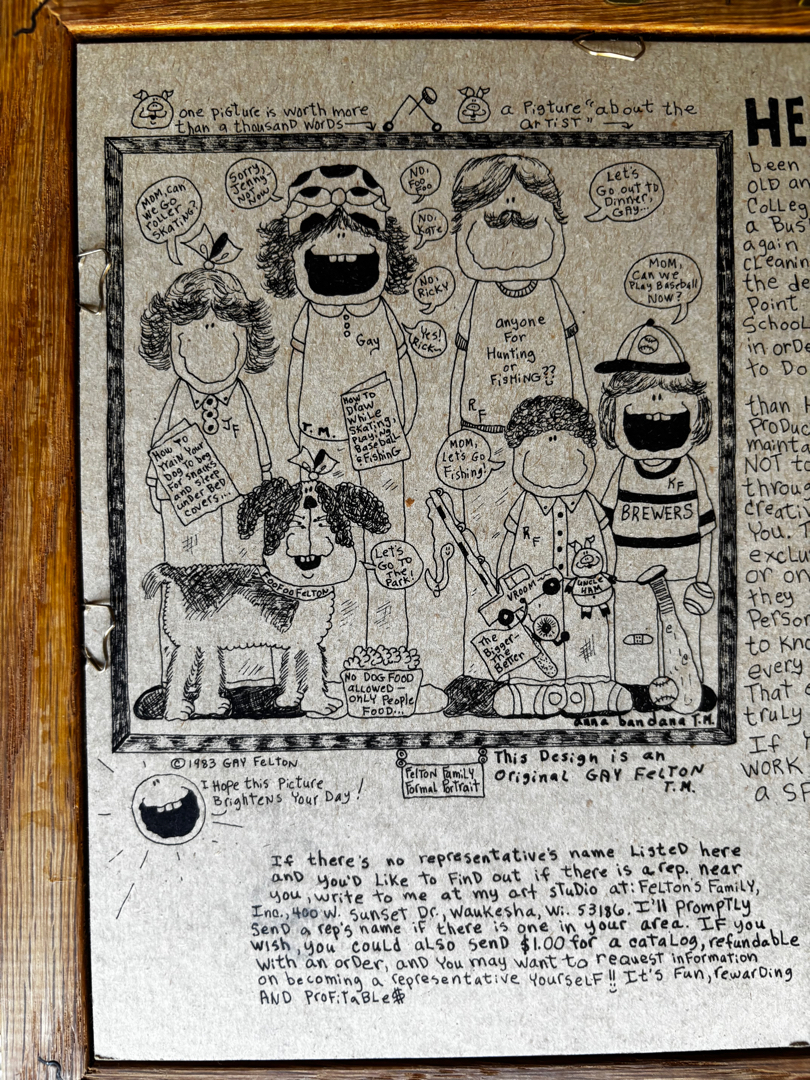 one picture is worth more
than a thousanD worDs
a Pigture "about the
ArTiST"
MOM, can
we Go
roller
SKATiNG?
Sorry,
Jenny-
Not
Now
No,
Foo
Foo
No,
Kate
No,
Ricky
Yes!
Rick~
Let's
Go out to
Dinner,
GAY...
MOM,
Can we
Play Baseball
NOW?
Gay
T.M.
How To
Draw
While
Skating,
Playing
Baseball
& Fishing
anyone
For
Hunting
or
FisHiNG??
RF
JF
How To
Train Your
Dog To beg
For snacks
and sleep
under Bed
covers...
MOM,
Let's Go
Fishing!
RF
KF
BREWERS
Let's
Go To
The
Park!
FOOFOO FELTON
VROOM~
UNCLE
HAM
The
Bigger-
The
Better
No DOG FOOD
allowed —
only People
FOOD...
anna bandana T.M.
©1983 GAY FELTON
I Hope this Picture
Brightens Your Day!
Felton Family
Formal Portrait
This Design is an
Original GAY FELTON
T.M.
If there's no representative's name ListeD here
anD you'D Like to FinD out if there is a rep. near
you, write to me at my art stuDio at: FeLtON's FamiLy,
Inc., 400 W. Sunset Dr., Waukesha, Wi. 53186. I'll PromPtLy
SenD a rep's name if there is one in your area. IF you
wish, you could also send $1.00 for a cataLog, refundable
with an orDer, anD You may want to request information
on becoming a representative YourseLF!! It's Fun, rewarDing
AND ProFiTaBLe$
HE
been
OLD an
CoLLeg
a Bus
again
cLeanin
the de
Point
SchooL
in orDe
to Do
than H
ProDuc
mainta
NOT to
throug
creativ
You.
excLu
or on
they
Person
to Kno
every
That
truly
If Y
WORK
a SP